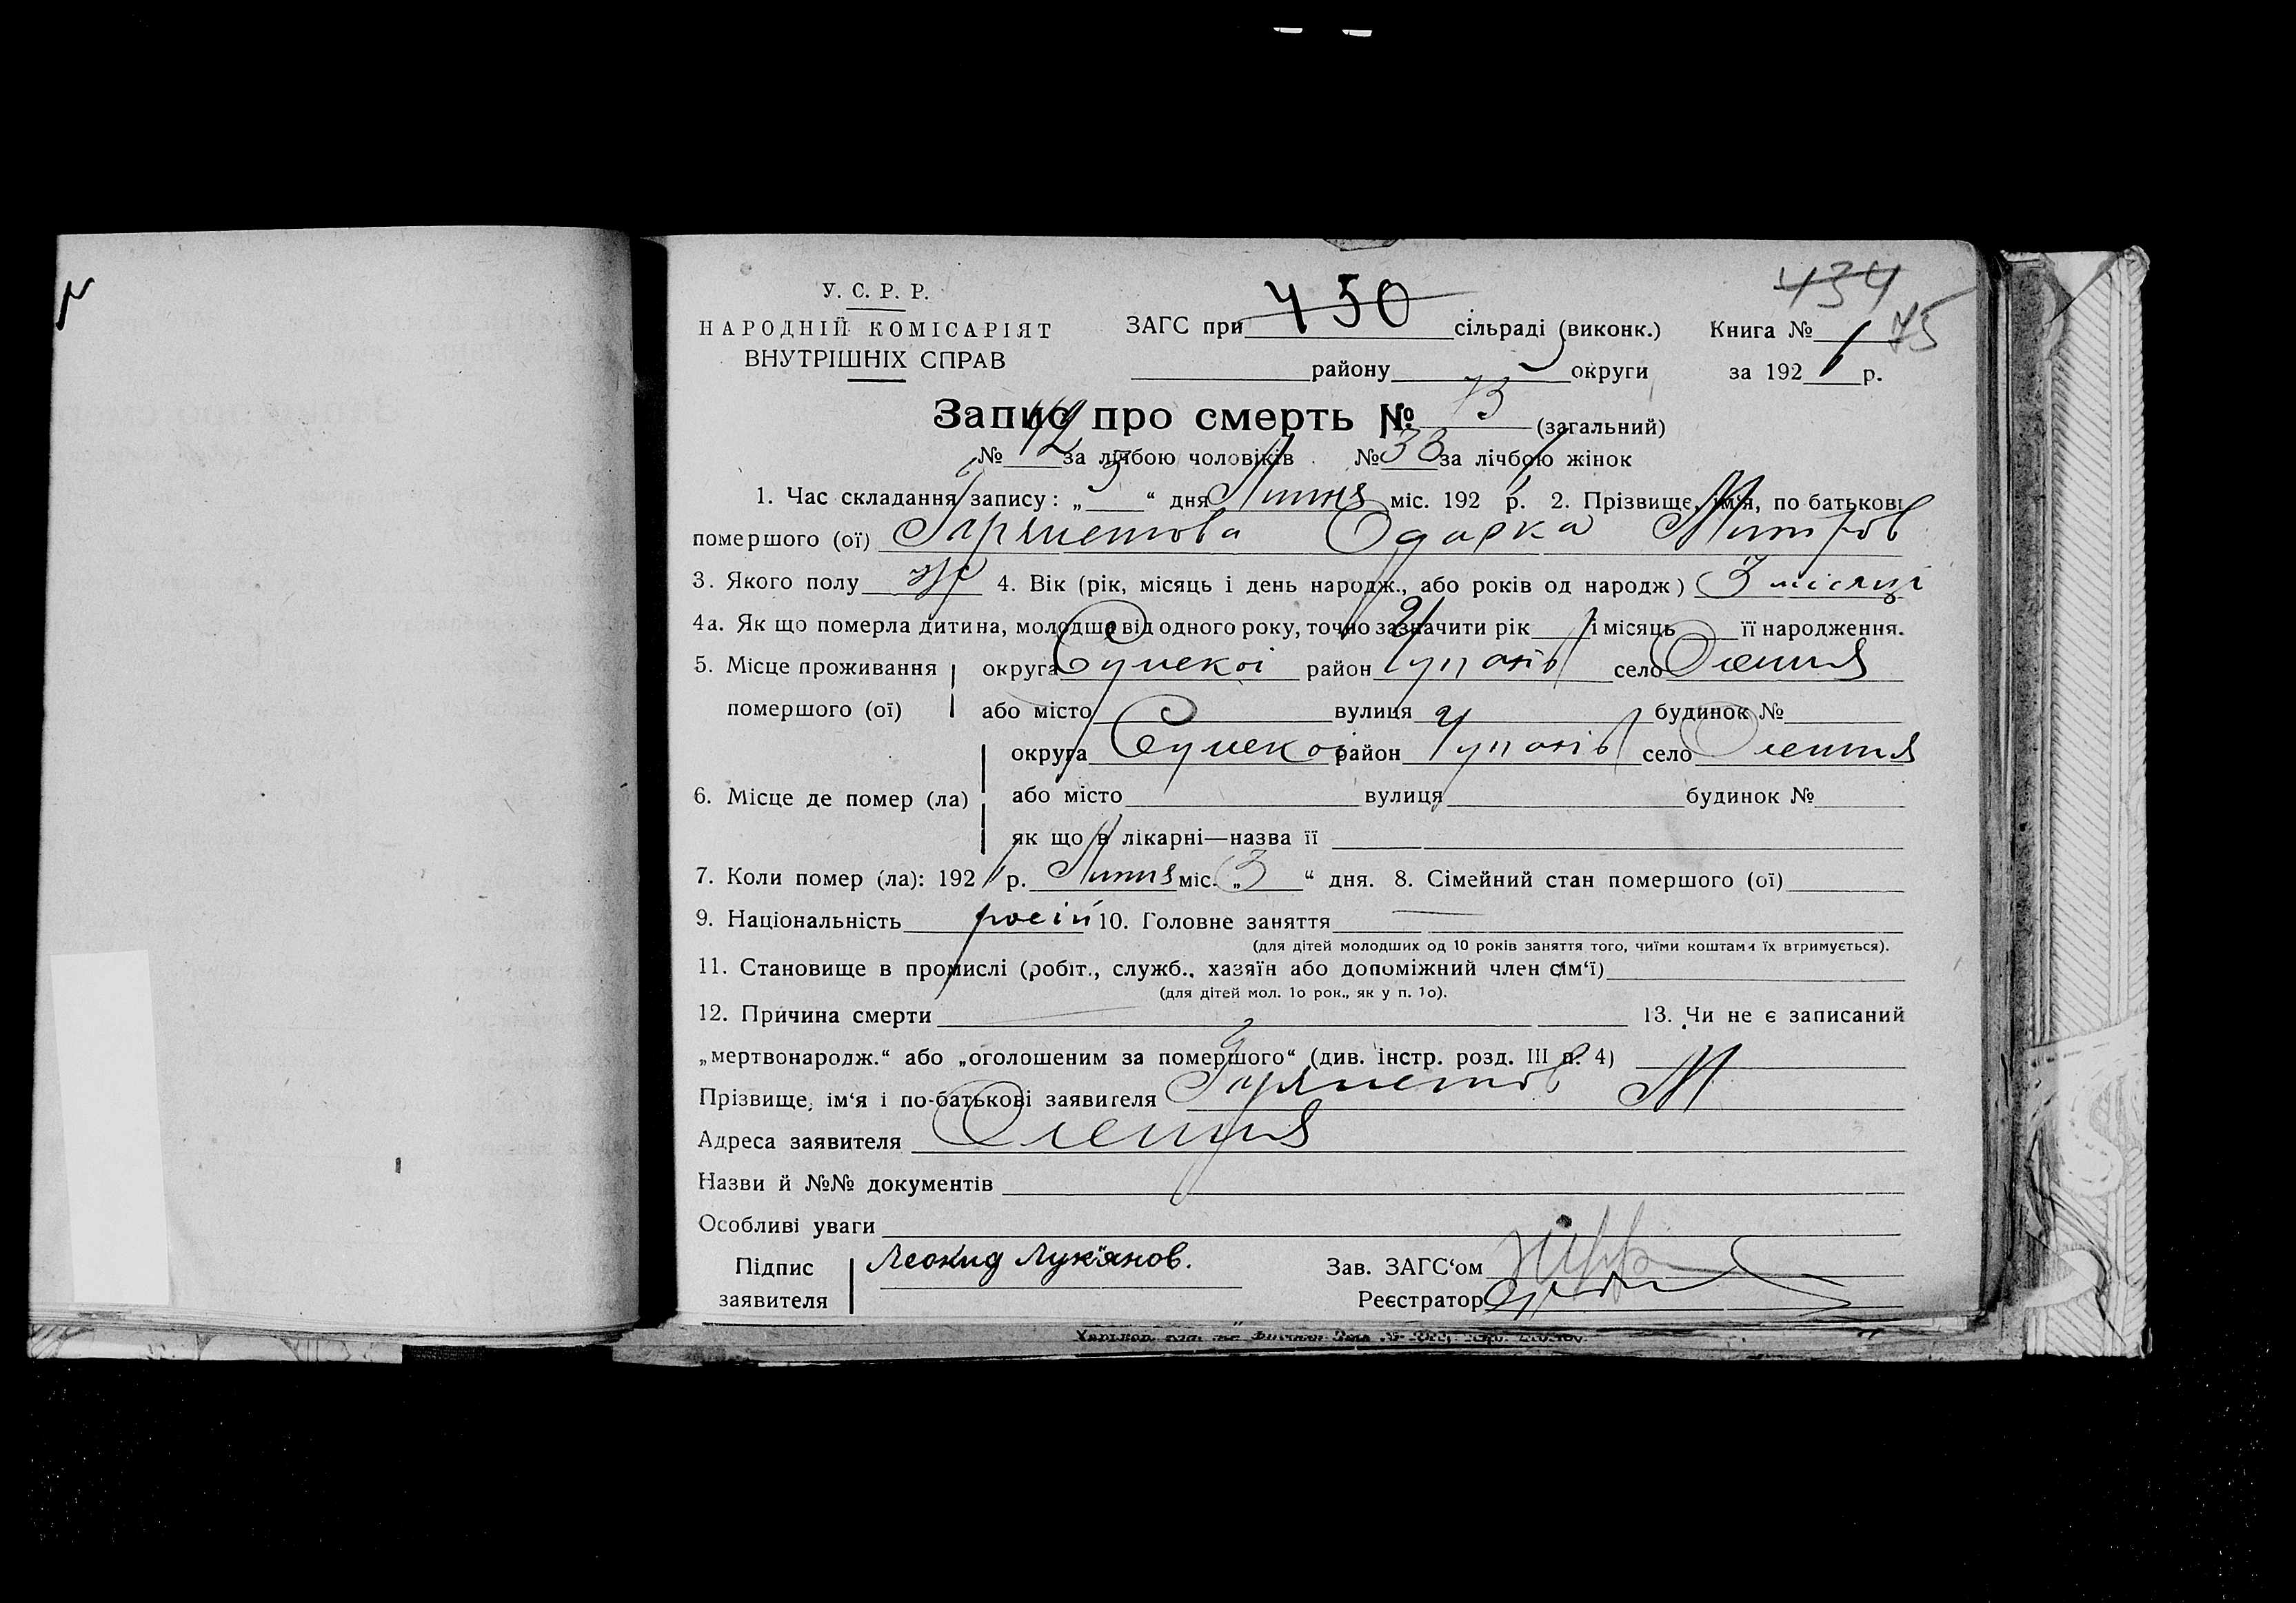 434
У. С. Р. Р.
450
75
НАРОДНІЙ КОМІСАРІЯТ
ЗАГС при сільраді (виконк.) Книга № 1
ВНУТРІШНІХ СПРАВ
району округи за 192 р.
Запис про смерть № 73 (загальний)
№ за лічбою чоловіків № 33 за лічбою жінок
1. Час складання запису: „ 3 “ дня Липня міс. 192 р. 2. Прізвище, ім'я, по батькові
помершого (ої) Одарка Митров
3. Якого полу ж 4. Вік (рік, місяць і день народж., або років од народж) 3 місяці
4а. Як що померла дитина, молодша від одного року, точно зазначити рік і місяць її народження.
5. Місце проживання округа Сумської район село
помершого (ої) або місто вулиця будинок №
округа Сумської район село
6. Місце де помер (ла) або місто вулиця будинок №
як що в лікарні—назва її
7. Коли помер (ла): 192 р. Липня міс. „ 3 “ дня. 8. Сімейний стан помершого (ої)
9. Національність росій 10. Головне заняття
(для дітей молодших од 10 років заняття того, чиїми коштами їх втримується).
11. Становище в промислі (робіт., служб., хазяїн або допоміжний член сім‘ї)
(для дітей мол. 1о рок., як у п. 1о).
12. Причина смерти 13. Чи не є записаний
„мертвонародж.“ або „оголошеним за помершого“ (див. інстр. розд. III п. 4)
Прізвище, ім‘я і по-батькові заявителя М
Адреса заявителя
Назви й №№ документів
Особливі уваги
Підпис Леонид Лук'янов. Зав. ЗАГС‘ом
заявителя Реєстратор